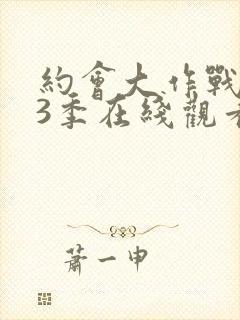 約會大作戰
3季在綫觀看
蕭一申